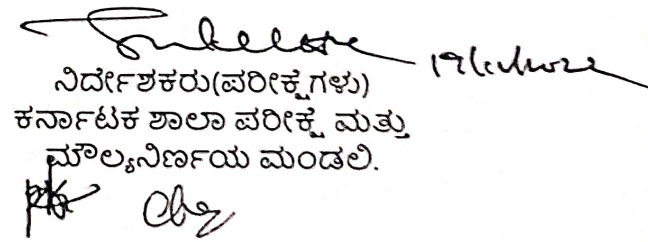 ನಿರ್ದೇಶಕರು(ಪರೀಕ್ಷೆಗಳು)
ಕರ್ನಾಟಕ ಶಾಲಾ ಪರೀಕ್ಷೆ ಮತ್ತು
ಮೌಲ್ಯನಿರ್ಣಯ ಮಂಡಲಿ.